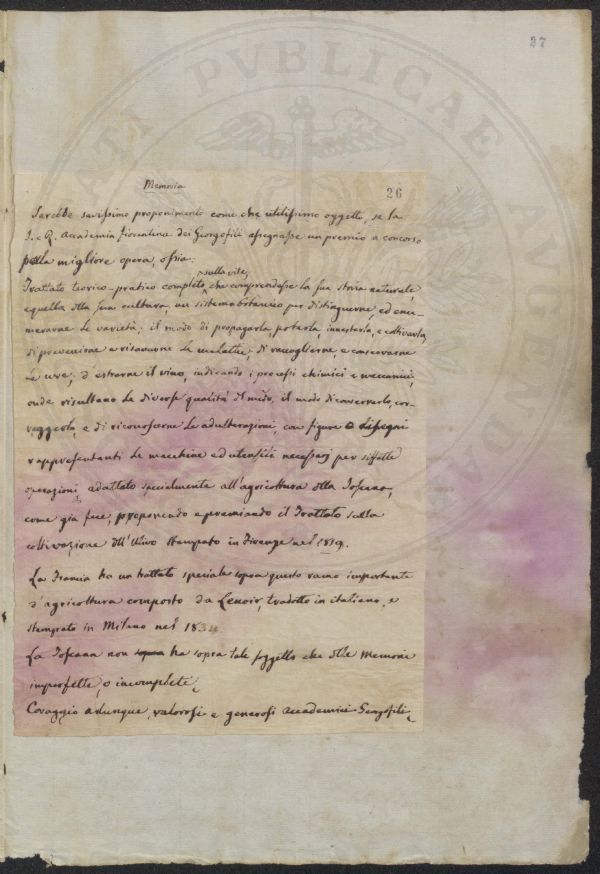 27
PVBLICAE
Memoria
26
Sarebbe savissimo proponimento come che utilissimo oggetto, se la
I. e R. Accademia Fiorentina dei Georgofili assegnasse un premio a concorso
pella migliore opera, ossia:
sulla vite,
Trattato teorico-pratico completo, che comprendesse la sua storia naturale,
e quella della sua cultura, un sistema botanico per distinguerne, ed enu-
merarne le varietà; il modo di propagarla, potarla, innestarla, e coltivarla,
di prevenirne e risanarne le malattie, di raccoglierne e conservarne
le uve; d'estrarne il vino, indicando i processi chimici e meccanici,
onde risultano le diverse qualità del med.o, il modo di conservarlo, cor-
reggerlo, e di riconoscerne le adulterazioni, con figure o disegni
rappresentanti le macchine ed utensili necessarj per siffatte
operazioni, adattato specialmente all'agricoltura della Toscana,
come già fece, proponendo e premiando il Trattato sulla
coltivazione dell'Ulivo stampato in Firenze nel 1819.
La Francia ha un trattato speciale sopra questo ramo importante
d'agricoltura composto da Lenoir, tradotto in italiano, e
stampato in Milano nel 1834
La Toscana non ha sopra tale soggetto che delle Memorie
imperfette, o incomplete.
Coraggio adunque, valorosi e generosi Accademici Georgofili.